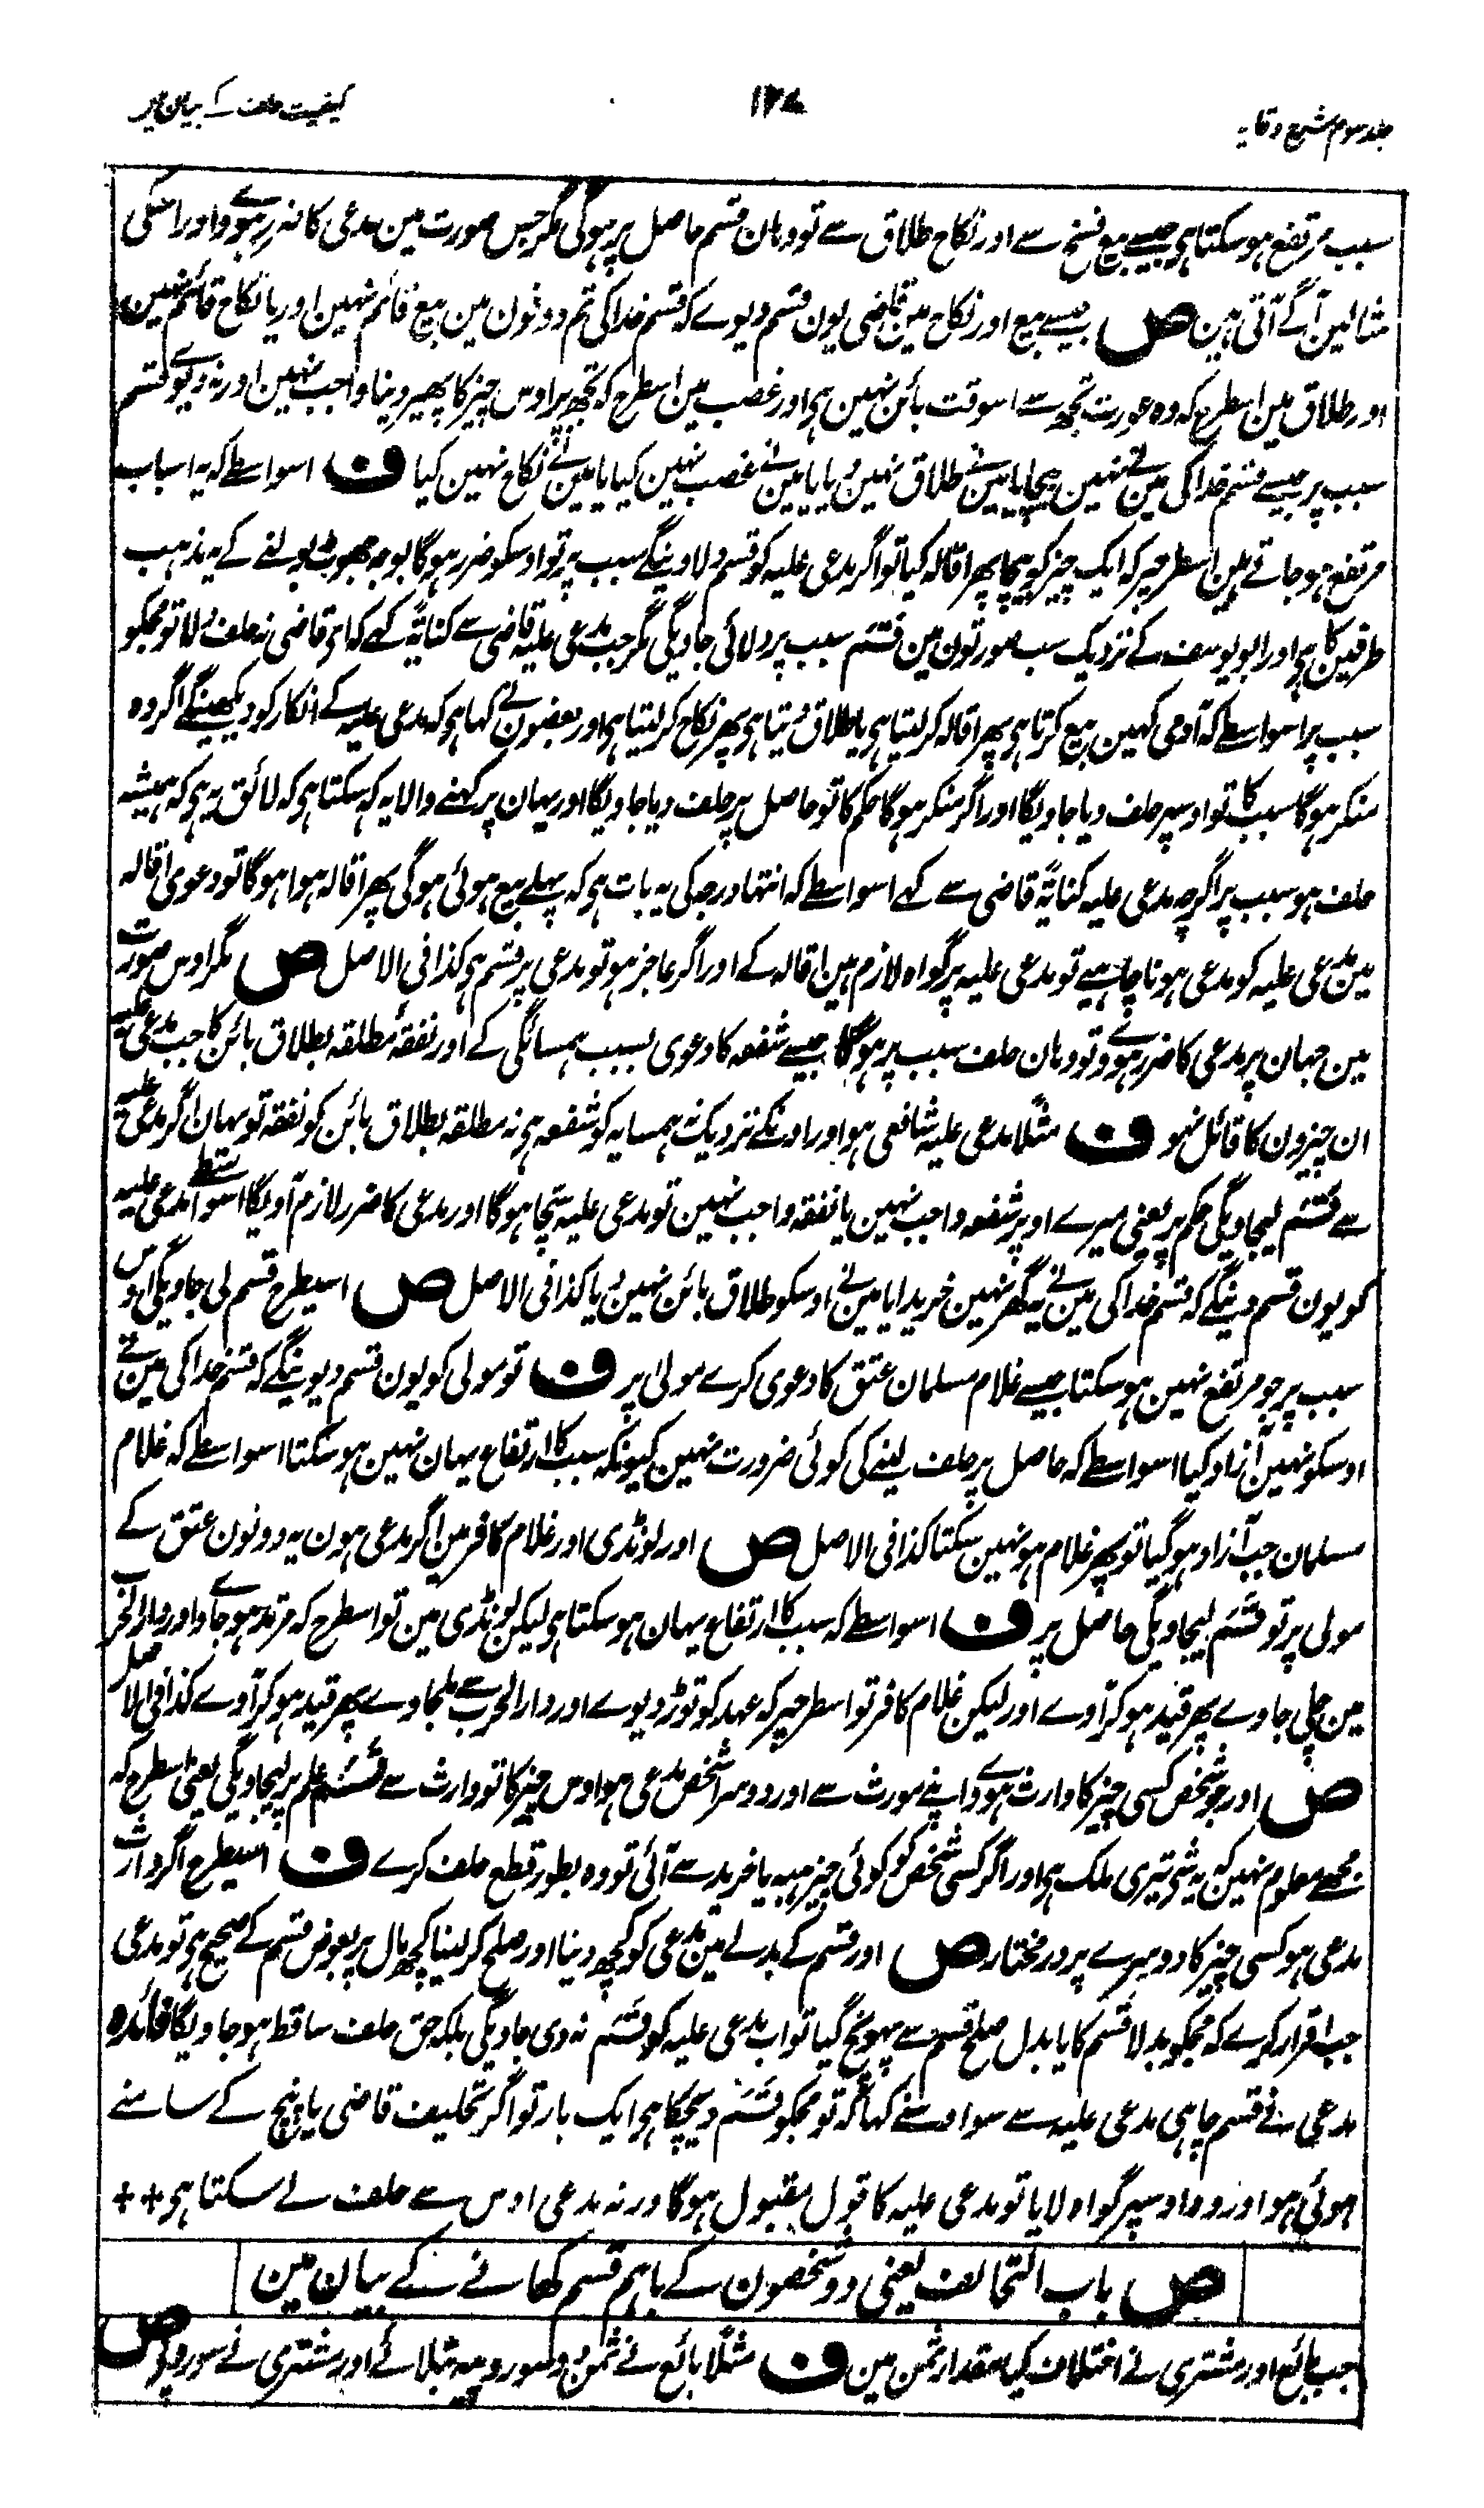 جلد سوم شرح وقایہ
۱۲۸
کیفیت حلف کے بیان میں
سبب مرتفع ہو سکتا ہی جیسے بیع فسخ سے اور نکاح طلاق سے تو وہان قسم حاصل پر ہوگی مگر جس صورت مین مدعی کا ضرر ہووے اور اسکی
مثالین آگے آتی ہین ص جیسے بیع اور نکاح مین قاضی یون قسم دیوے کہ قسم خدا کی تم دونون مین بیع قائم نہین اور یا نکاح قائم نہین
اور طلاق مین اسطرح کہ وہ عورت تجھ سے اسوقت بائن نہین ہی اور غصب مین اسطرح کہ تجھ پر اوس چیز کا پھیر دینا واجب نہین اور نہ دیوے قسم
سبب پر جیسے قسم خدا کی مین نے نہین بیچا یا مین نے طلاق نہین دیا یا مین نے غصب نہین کیا یا مین نے نکاح نہین کیا ف اسواسطے کہ یہ اسباب
مرتفع ہو جاتے ہین اسطرحپر کہ ایک چیز کو بیچا پھر اقالہ کیا تو اگر مدعی علیہ کو قسم دلاوینگے سبب پر تو اوسکو ضرر ہوگا بوجہ جھوٹ بولنے کے یہ مذہب
طرفین کا ہی اور ابو یوسف کے نزدیک سب صورتون مین قسم سبب پر دلائی جاویگی مگر جب مدعی علیہ قاضی سے کنایۃً کہے کہ ای قاضی نہ حلف دلا تو مجکو
سبب پر اسواسطے کہ آدمی کہین بیع کرتا ہی پھر اقالہ کر لیتا ہی یا طلاق دیتا ہی پھر نکاح کر لیتا ہی اور بعضون نے کہا ہی کہ مدعی علیہ کے انکار کو دیکھینگے اگر وہ
منکر ہوگا سبب کا تو اوسپر حلف دیا جاویگا اور اگر منکر ہوگا حکم کا تو حاصل پر حلف دیا جاویگا اور یہان پر کہنے والا یہ کہ سکتا ہی کہ لائق یہ ہی کہ ہمیشہ
حلف ہو سبب پر اگرچہ مدعی علیہ کنایۃً قاضی سے کہے اسواسطے کہ انتہا درجہ کی یہ بات ہی کہ پہلے بیع ہوئی ہوگی پھر اقالہ ہوا ہوگا تو دعوی اقالہ
مین مدعی علیہ کو مدعی ہونا چاہیے تو مدعی علیہ پر گواہ لازم ہین اقالہ کے اور اگر عاجز ہو تو مدعی پر قسم ہی کذا فی الاصل ص مگر اوس صورت
مین جہان پر مدعی کا ضرر ہووے تو وہان حلف سبب پر ہوگا جیسے شفعہ کا دعوی بسبب ہمسائگی کے اور نفقۂ مطلقہ بطلاق بائن کا جب مدعی علیہ
ان چیزون کا قائل نہو ف مثلًا مدعی علیہ شافعی ہو اور اونکے نزدیک نہ ہمسایہ کو شفعہ ہی نہ مطلقہ بطلاق بائن کو نفقہ تو یہان اگر مدعی علیہ
سے قسم لیجاویگی حکم پر یعنی میرے اوپر شفعہ واجب نہین یا نفقہ واجب نہین تو مدعی علیہ سچا ہوگا اور مدعی کا ضرر لازم آویگا اسواسطے مدعی علیہ
کو یون قسم دینگے کہ قسم خدا کی مین نے یہ گھر نہین خریدا یا مین نے اوسکو طلاق بائن نہین دیا کذا فی الاصل ص اسیطرح قسم لی جاویگی اوس
سبب پر جو مرتفع نہین ہو سکتا جیسے غلام مسلمان عتق کا دعوی کرے مولی پر ف تو مولی کو یون قسم دیوینگے کہ قسم خدا کی مین نے
اوسکو نہین آزاد کیا اسواسطے کہ حاصل پر حلف لینے کی کوئی ضرورت نہین کیونکہ سبب کا ارتفاع یہان نہین ہو سکتا اسواسطے کہ غلام
مسلمان جب آزاد ہو گیا تو پھر غلام ہو نہین سکتا کذا فی الاصل ص اور لونڈی اور غلام کافر مین اگر مدعی ہون یہ دونون عتق کے
مولی پر تو قسم لیجاویگی حاصل پر ف اسواسطے کہ سبب کا ارتفاع یہان ہو سکتا ہی لیکن لونڈی مین تو اسطرح کہ مرتد ہو جاوے اور دار الحرب
مین چلی جاوے پھر قید ہو کر آوے اور لیکن غلام کافر تو اسطرحپر کہ عہد کو توڑ دیوے اور دار الحرب سے ملجاوے پھر قید ہو کر آوے کذا فی الاصل
ص اور جو شخص کسی چیز کا وارث ہووے اپنے مورث سے اور دوسرا شخص مدعی ہو اوس چیز کا تو وارث سے قسم علم پر لیجاویگی یعنی اسطرح کہ
مجھے معلوم نہین کہ یہ شی تیری ملک ہی اور اگر کسی شخص کو کوئی چیز ہبہ یا خرید سے آئی تو وہ بطور قطع حلف کرے ف اسیطرح اگر وارث
مدعی ہو کسی چیز کا دوسرے پر در مختار ص اور قسم کے بدلے مین مدعی کو کچھ دینا اور صلح کر لینا کچھ مال پر بعوض قسم کے صحیح ہی تو مدعی
جب اقرار کرے کہ مجکو بدلا قسم کا یا بدل صلح قسم سے پہونچ گیا تو اب مدعی علیہ کو قسم نہ دی جاویگی بلکہ حق حلف ساقط ہو جاویگا فائدہ
مدعی نے قسم چاہی مدعی علیہ سے سو اوسنے کہا کہ تو مجکو قسم دیچکا ہی ایک بار تو اگر تحلیف قاضی یا پنچ کے سامنے
ہوئی ہو اور وہ اوسپر گواہ لایا تو مدعی علیہ کا قول مقبول ہوگا ورنہ مدعی اوس سے حلف لے سکتا ہی ++
ص باب التحالف یعنی دو شخصون کے باہم قسم کھانے کے بیان مین
جب بائع اور مشتری نے اختلاف کیا مقدار ثمن مین ف مثلًا بائع نے ثمن دو سو روپیہ بتلائے اور مشتری نے سو روپے ص